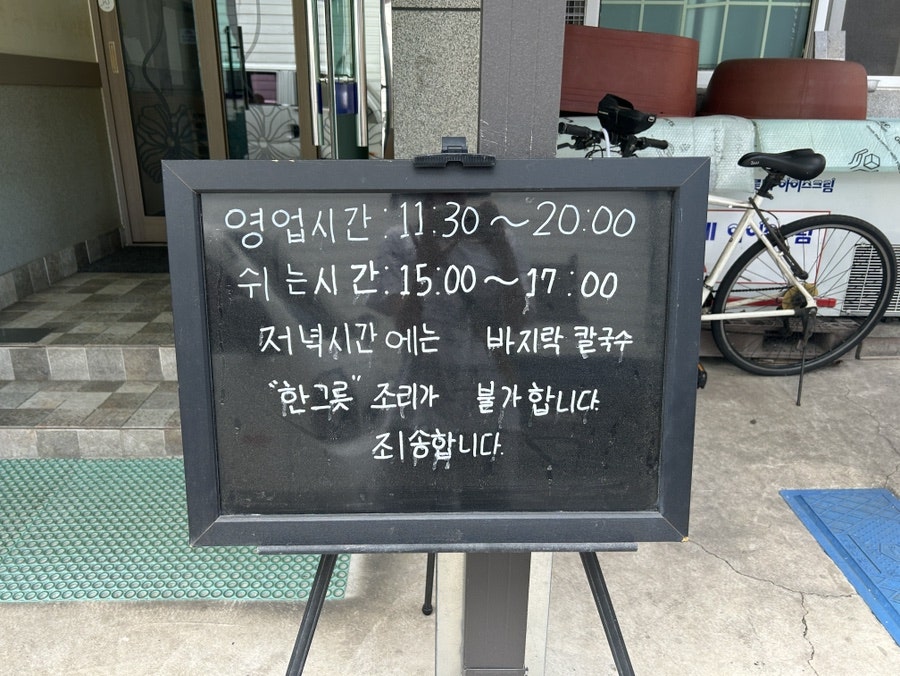 영업시간:11:30~20:00
쉬는시간:15:00~17:00
저녁시간에는 바지락 칼국수
"한그릇" 조리가 불가합니다.
죄송합니다.
아이스크림